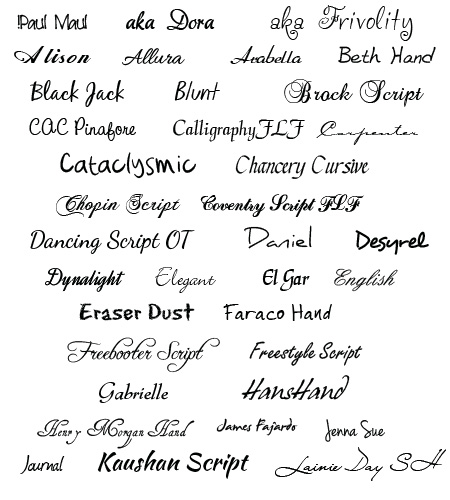 !Paul Maul aka Dora aka Frivolity
Alison Allura Arabella Beth Hand
Black Jack Blunt Brock Script
CAC Pinafore CalligraphyFLF Carpenter
Cataclysmic Chancery Cursive
Chopin Script Coventry Script FLF
Dancing Script OT Daniel Desyrel
Dynalight Elegant El Gar English
Eraser Dust Faraco Hand
Freebooter Script Freestyle Script
Gabrielle HansHand
Henry Morgan Hand James Fajardo Jenna Sue
Journal Kaushan Script Lainie Day SH